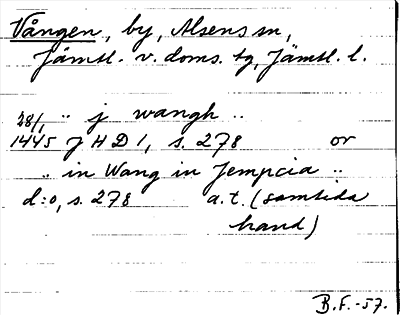 Vången, by, Alsens sn,
Jämtl. v. doms. tg, Jämtl. l.
28/1 " j wangh "
1445 JHD1, s. 278 or
" in Wang in Jempcia "
d:o, s. 278 a.t. (samtida
hand)
B.F.-57.